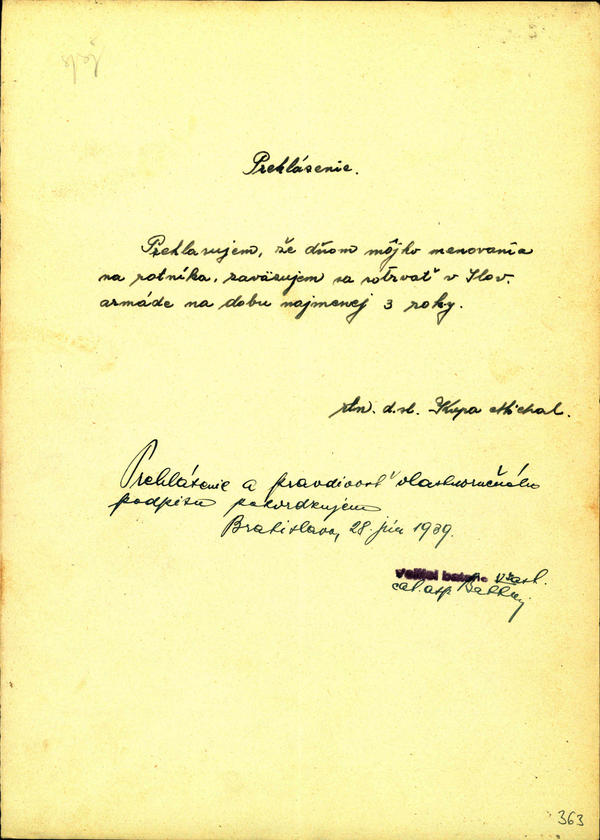 Prehlásenie.
Prehlasujem, že dňom môjho menovania
na rotníka, zaväzujem sa sotrvať v Slov.
armáde na dobu najmenej 3 roky.
Kupa Michal.
Prehlásenie a pravdivosť vlastnoručného
podpisu potvrdzujem
Bratislava, 28. jún 1939.
Veliteľ
363